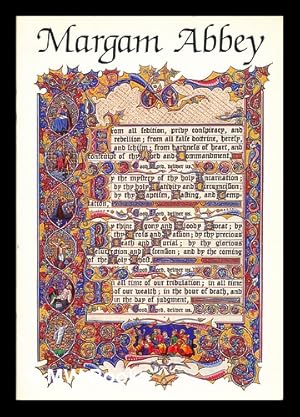 Margam Abbey
From all sedition, privy conspiracy, and
rebellion; from all false doctrine, heresy,
and schism; from hardness of heart, and
contempt of thy Word and Commandment,
Good Lord, deliver us.
By the mystery of thy holy Incarnation;
by thy holy Nativity and Circumcision;
by thy Baptism, Fasting, and Temp-
tation,
Good Lord, deliver us.
By thine Agony and Bloody Sweat; by
thy Cross and Passion; by thy precious
Death and Burial; by thy glorious
Resurrection and Ascension; and by the coming
of the Holy Ghost,
Good Lord, deliver us.
In all time of our tribulation; in all time
of our wealth; in the hour of death, and
in the day of judgment,
Good Lord, deliver us.